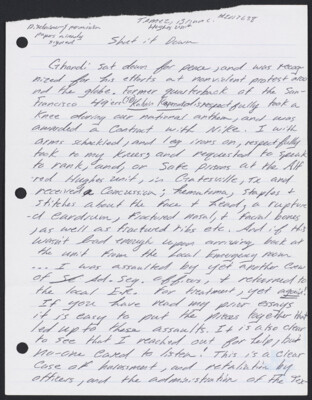 Hughes Unit
papers already
signed
Shut it Down
Ghandi sat down for peace, and was recog-
nized for his efforts at nonviolent protest arou
nd the globe. Former quarterback at the San-
Francisco 49ers respectfully took a
Knee during our national anthem, and was
awarded a Contract with Nike. I with
arms schackled, and leg irons on, respectfully
took to my Knees and requested to speak
to rank, and on Safe prisons at the Alf-
red Hughes Unit, in Gatesville, Tx and
received a Concussion, hematoma, Staples &
Stitches about the face & head, a ruptur-
d Eardrum, fractured nasal, & facial bones
, as well as fractured ribs etc. And if this
wasn't bad enough upon arriving back at
the unit from the local Emergency room
... I was assaulted by yet another Crew
of Ad. Seg. officers, & returned to
the local E.R. for treatment, yet again!
If you have read my prior essays
it is easy to put the pieces together that
led up to these assaults. It is also clear
to see that I reached out for help, but
no-one Cared to listen! This is a clear
Case of harassment, and retaliation by
officers, and the administration of the Tex-